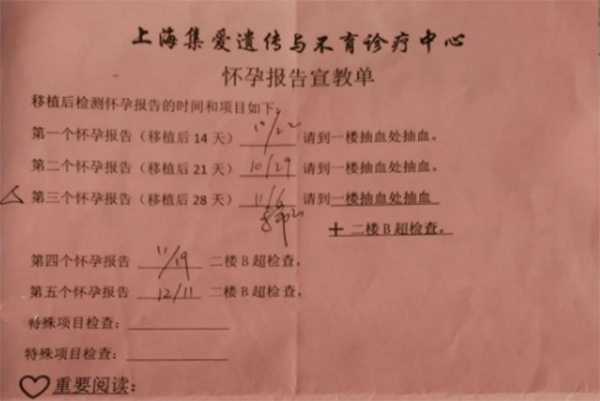 上海集爱遗传与不育诊疗中心
怀孕报告宣教单
移植后检测怀孕报告的时间和项目如下。
第一个怀孕报告（移植后 14 天） 10/22 请到一楼抽血处抽血。
第二个怀孕报告（移植后 21 天） 10/29 请到一楼抽血处抽血。
第三个怀孕报告（移植后 28 天） 11/6 请到一楼抽血处抽血
+ 二楼 B 超检查。
第四个怀孕报告 11/19 二楼 B 超检查。
第五个怀孕报告 12/11 二楼 B 超检查。
特殊项目检查：
特殊项目检查：
重要阅读：